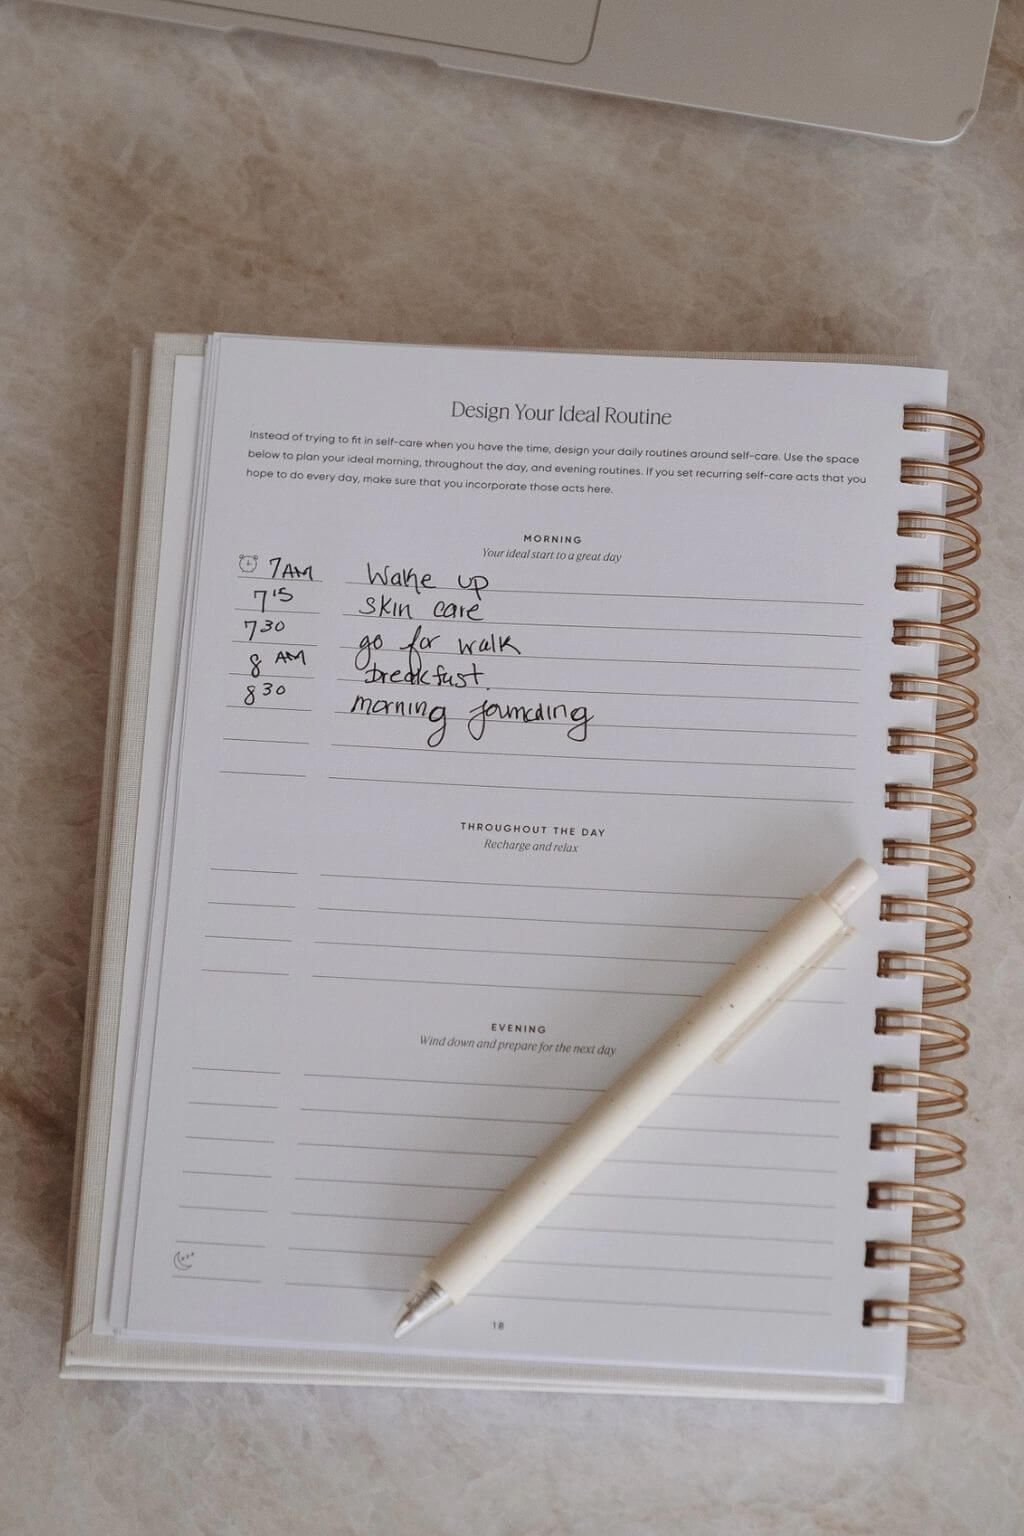 Design Your Ideal Routine
Instead of trying to fit in self-care when you have the time, design your daily routines around self-care. Use the space
below to plan your ideal morning, throughout the day, and evening routines. If you set recurring self-care acts that you
hope to do every day, make sure that you incorporate those acts here.
MORNING
Your ideal start to a great day
7AM Wake up
7 15 skin care
7 30 go for walk
8 AM breakfast.
8 30 morning journaling
THROUGHOUT THE DAY
Recharge and relax
EVENING
Wind down and prepare for the next day
18